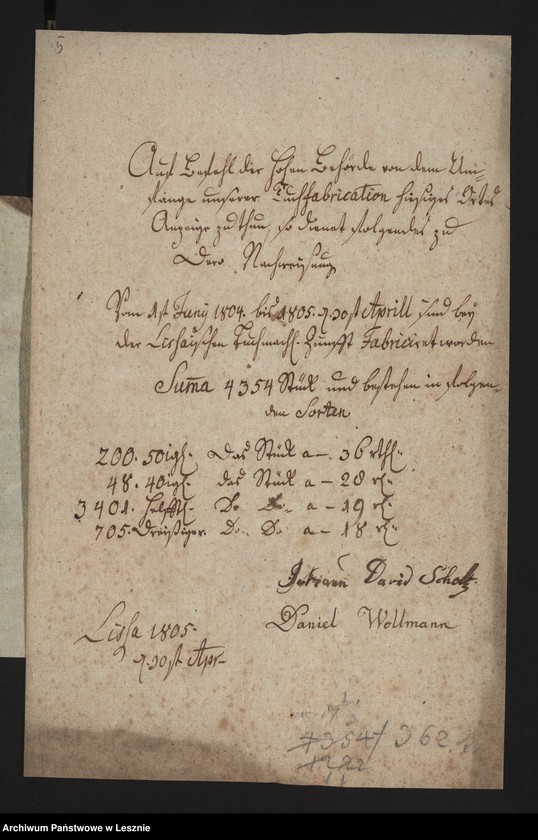 5
Auf Befehl der Hohen Behörde von dem Um-
fange unserer Tuchfabrication hiesiges Ortes
Anzeige zu thun, so dienet folgendes zu
Dero Nachweisung
Vom 1st Juny 1804. bis 1805. d. 30st Aprill sind bey
der Lissaischen Tuchmach. Zunfft Fabriciret worden
Suma 4354 Stück und bestehen in folgen-
den Sorten
200. 50igl. Das Stück a – 36 rthl.
48. 40igl. das Stück a – 28 rl.
3401. Do Do a – 19 rl.
705. Dreißiger. Do. Do a – 18 rl.
Johann David Scholtz
Daniel Wollmann
Lissa 1805.
d. 30st Apr.
4354/ 362
Archiwum Państwowe w Lesznie